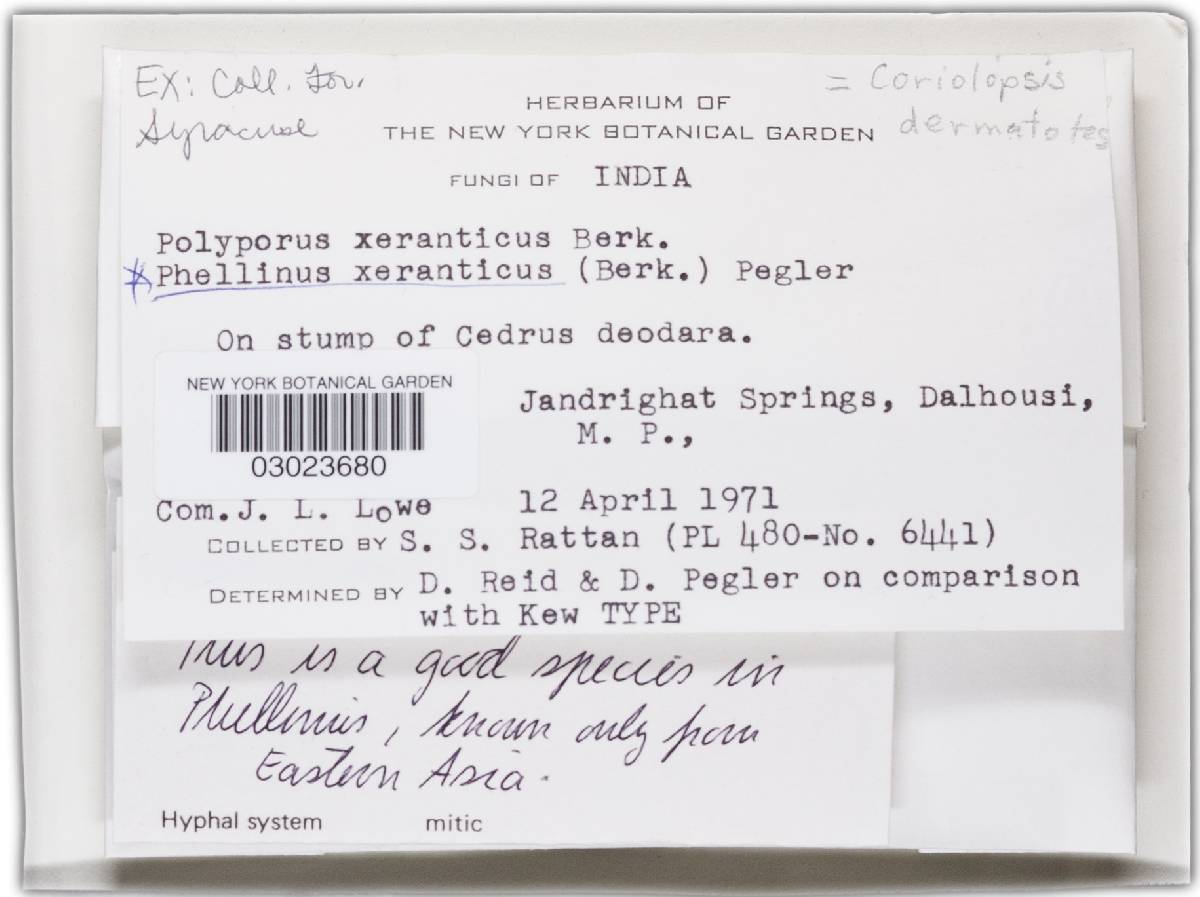 Ex: Coll. For.
Syracuse
= Coriolopsis
dermatotes
HERBARIUM OF
THE NEW YORK BOTANICAL GARDEN
FUNGI OF INDIA
Polyporus xeranticus Berk.
*Phellinus xeranticus (Berk.) Pegler
On stump of Cedrus deodara.
NEW YORK BOTANICAL GARDEN
03023680
Jandrighat Springs, Dalhousi,
M. P.,
Com. J. L. Lowe 12 April 1971
COLLECTED BY S. S. Rattan (PL 480-No. 6441)
DETERMINED BY D. Reid & D. Pegler on comparison
with Kew TYPE
This is a good species in
Phellinus, known only from
Eastern Asia.
Hyphal system mitic